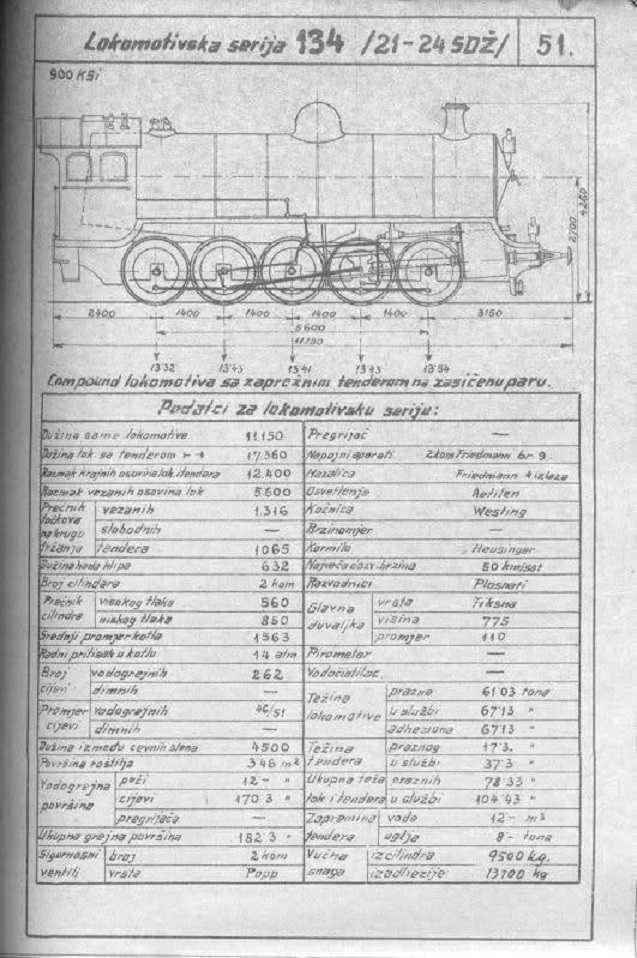 Lokomotivska serija 134 /21-24 SDŽ/ 51.
900 KSi
4260
2700
2400 1400 1400 1400 1400 3150
5.600
11.150
13'32 13'43 13'41 13'43 13'54
Compound lokomotiva sa zaprežnim tenderom na zasićenu paru.
Podatci za lokomotivsku seriju:
Dužina same lokomotive 11.150 Pregrijač —
Dužina lok. sa tenderom 17.560 Napojni aparati 2 kom Friedmann br 9.
Razmak krajnih osovina lok. i tendera 12.400 Mazalica Friedmann 4 izlaza
Razmak vezanih osovina lok 5.600 Osvetlenje Aetilen
Prečnik točkova na krugu trčanja vezanih 1.316 Kočnica Westing
slobodnih — Brzinomjer —
tendera 1065 Kormilo Heusinger
Dužina hoda klipa 632 Najveća dozv. brzina 50 km/sat
Broj cilindara 2 kom Razvodnici Plosnati
Prečnik cilindra visokog tlaka 560 Glavna duvaljka vrsta Fiksna
niskog tlaka 850 visina 775
Srednji promjer kotla 1563 promjer 110
Radni pritisak u kotlu 14 atm Pirometar —
Broj cijevi vodogrejnih 262 Vodočistilac —
dimnih — Težina lokomotive prazna 61'03 tona
Promjer cijevi vodogrejnih 46/51 u službi 67'13 "
dimnih — adhesiona 67'13 "
Dužina između cevnih stena 4500 Težina tendera praznog 17'3. "
Površina roštilja 3'46 m² u službi 37'3 "
Vodogrejna površina peći 12 — " Ukupna teža lok i tendera praznih 78'33 "
cijevi 170'3 " u službi 104'43 "
pregrijača — Zapremina tendera voda 12 — m³
Ukupna grejna površina 182'3 " uglja 8 - tona
Sigurnosni ventili broj 2 kom Vučna snaga iz cilindra 9500 kg.
vrsta Popp iz adhezije 13100 kg